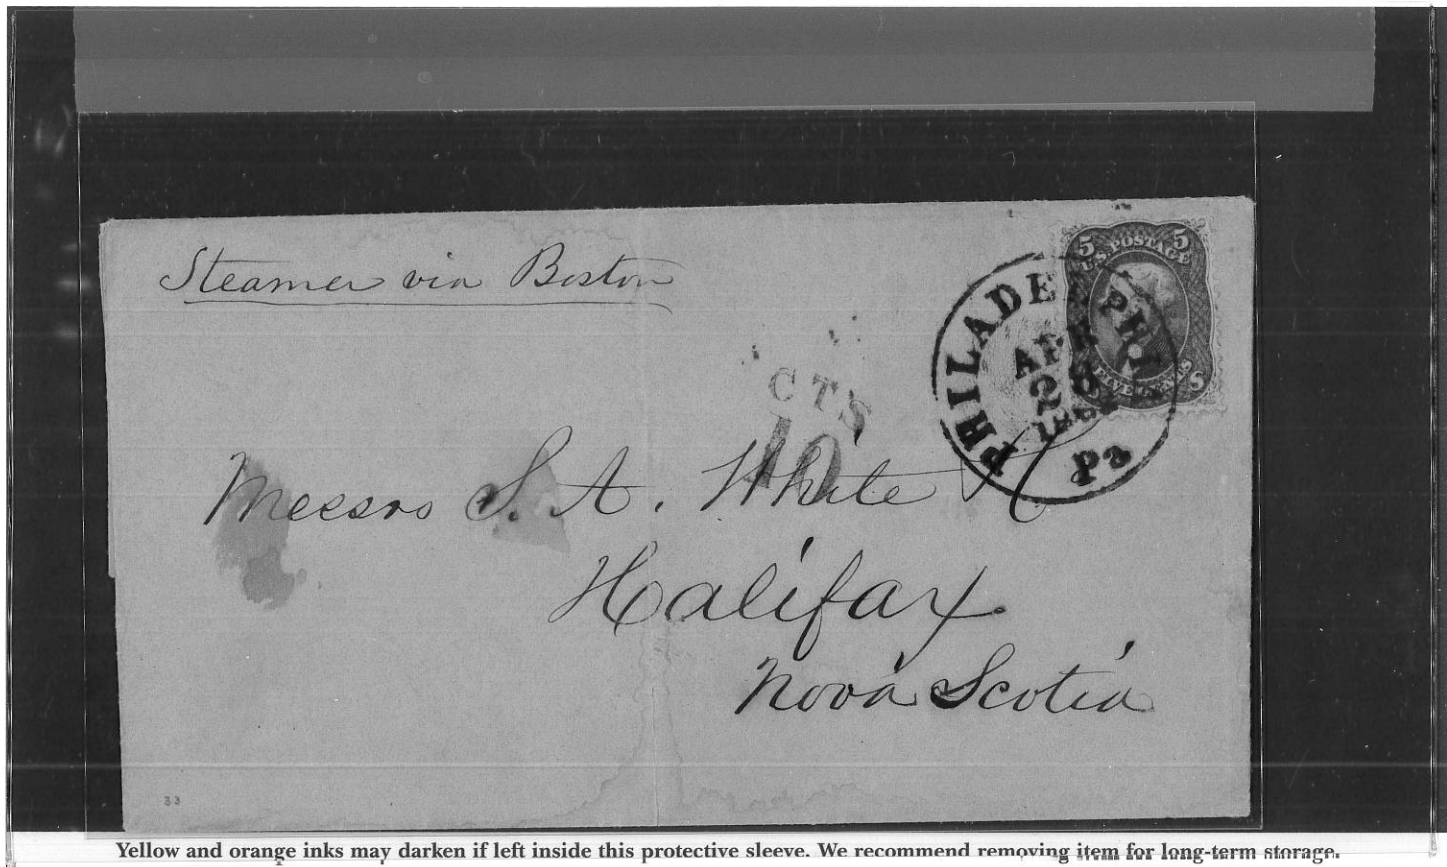 Steamer via Boston
5 U.S. POSTAGE 5
FIVE CENTS
PHILADELPHIA
APR
28
Pa
CTS
10
Messrs S. A. White
Halifax
Nova Scotia
33
Yellow and orange inks may darken if left inside this protective sleeve. We recommend removing item for long-term storage.